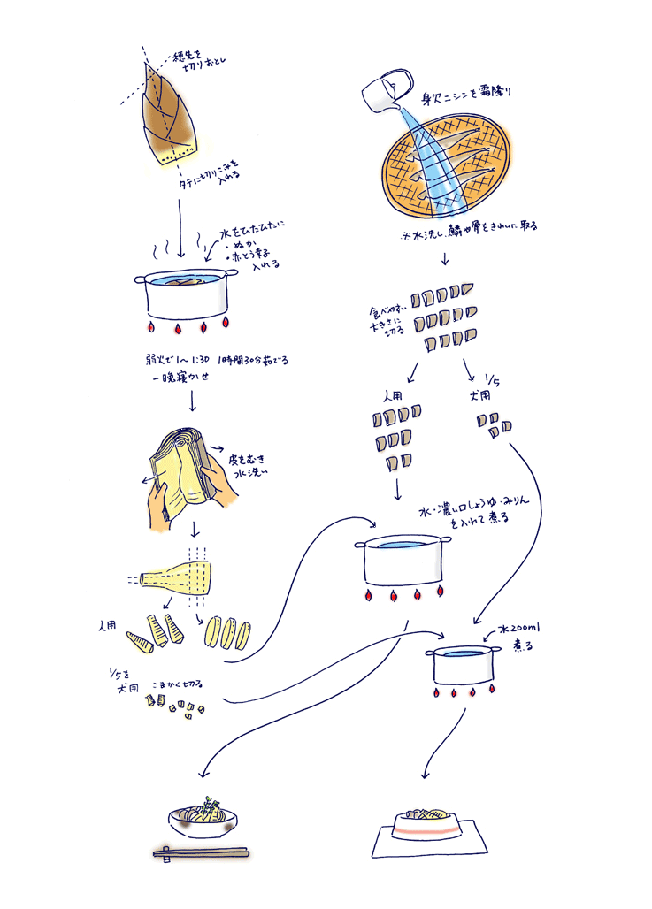 穂先を
切りおとし
タテに切りこみを
入れる
水をひたひたに
・ぬか
・赤とう辛子
入れる
弱火で1〜1:30 1時間30分茹でる
一晩寝かせ
皮をむき
水洗い
人用
1/5を
犬用 こまかく切る
身欠ニシンを霜降り
※水洗し、鱗や骨をきれいに取る
食べやすい
大きさに
切る
人用
1/5
犬用
水・濃い口しょうゆ・みりん
を入れて煮る
水200ml
煮る